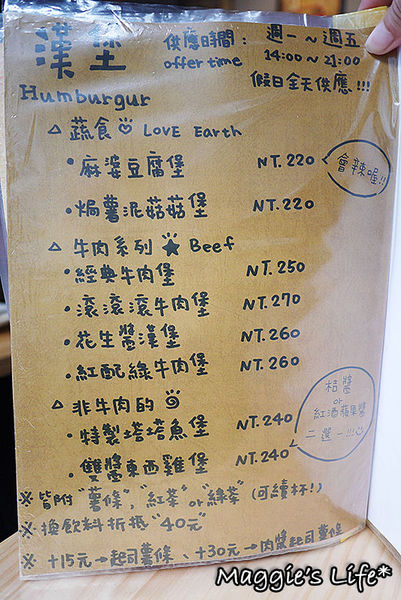 漢堡
Humburgur
供應時間： 週一～週五
offer time 14:00～21:00
假日全天供應!!!
△ 蔬食 LovE Earth
・麻婆豆腐堡 NT.220 會辣喔!!
・焗薯泥菇菇堡 NT.220
△ 牛肉系列★ Beef
・經典牛肉堡 NT.250
・滾滾滾牛肉堡 NT.270
・花生醬漢堡 NT.260
・紅配綠牛肉堡 NT.260
△ 非牛肉的
・特製塔塔魚堡 NT.240
・雙醬東西雞堡 NT.240
桔醬
or
紅酒蘋果醬
二選一!!!
※ 皆附"薯條", "紅茶" or "綠茶" (可續杯!)
※ 換飲料折抵 "40元"
※ +15元→起司薯條、+30元→肉醬起司薯條
Maggie's Life*